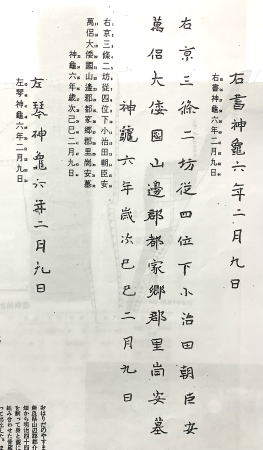 右書神龜六年二月九日
右書神龜六年二月九日
右京三條二坊従四位下小治田朝臣安
萬侶大倭國山邊郡都家郷郡里崗安墓
神龜六年歳次己巳二月九日
右京三條二坊從四位下小治田朝臣安
萬侶大倭國山邊郡都家郷郡里崗安墓
神龜六年歳次己巳二月九日
左琴神龜六年二月九日
左琴神龜六年二月九日
おはりだのやすま
奈良県山辺郡都介
畑から明治四十四